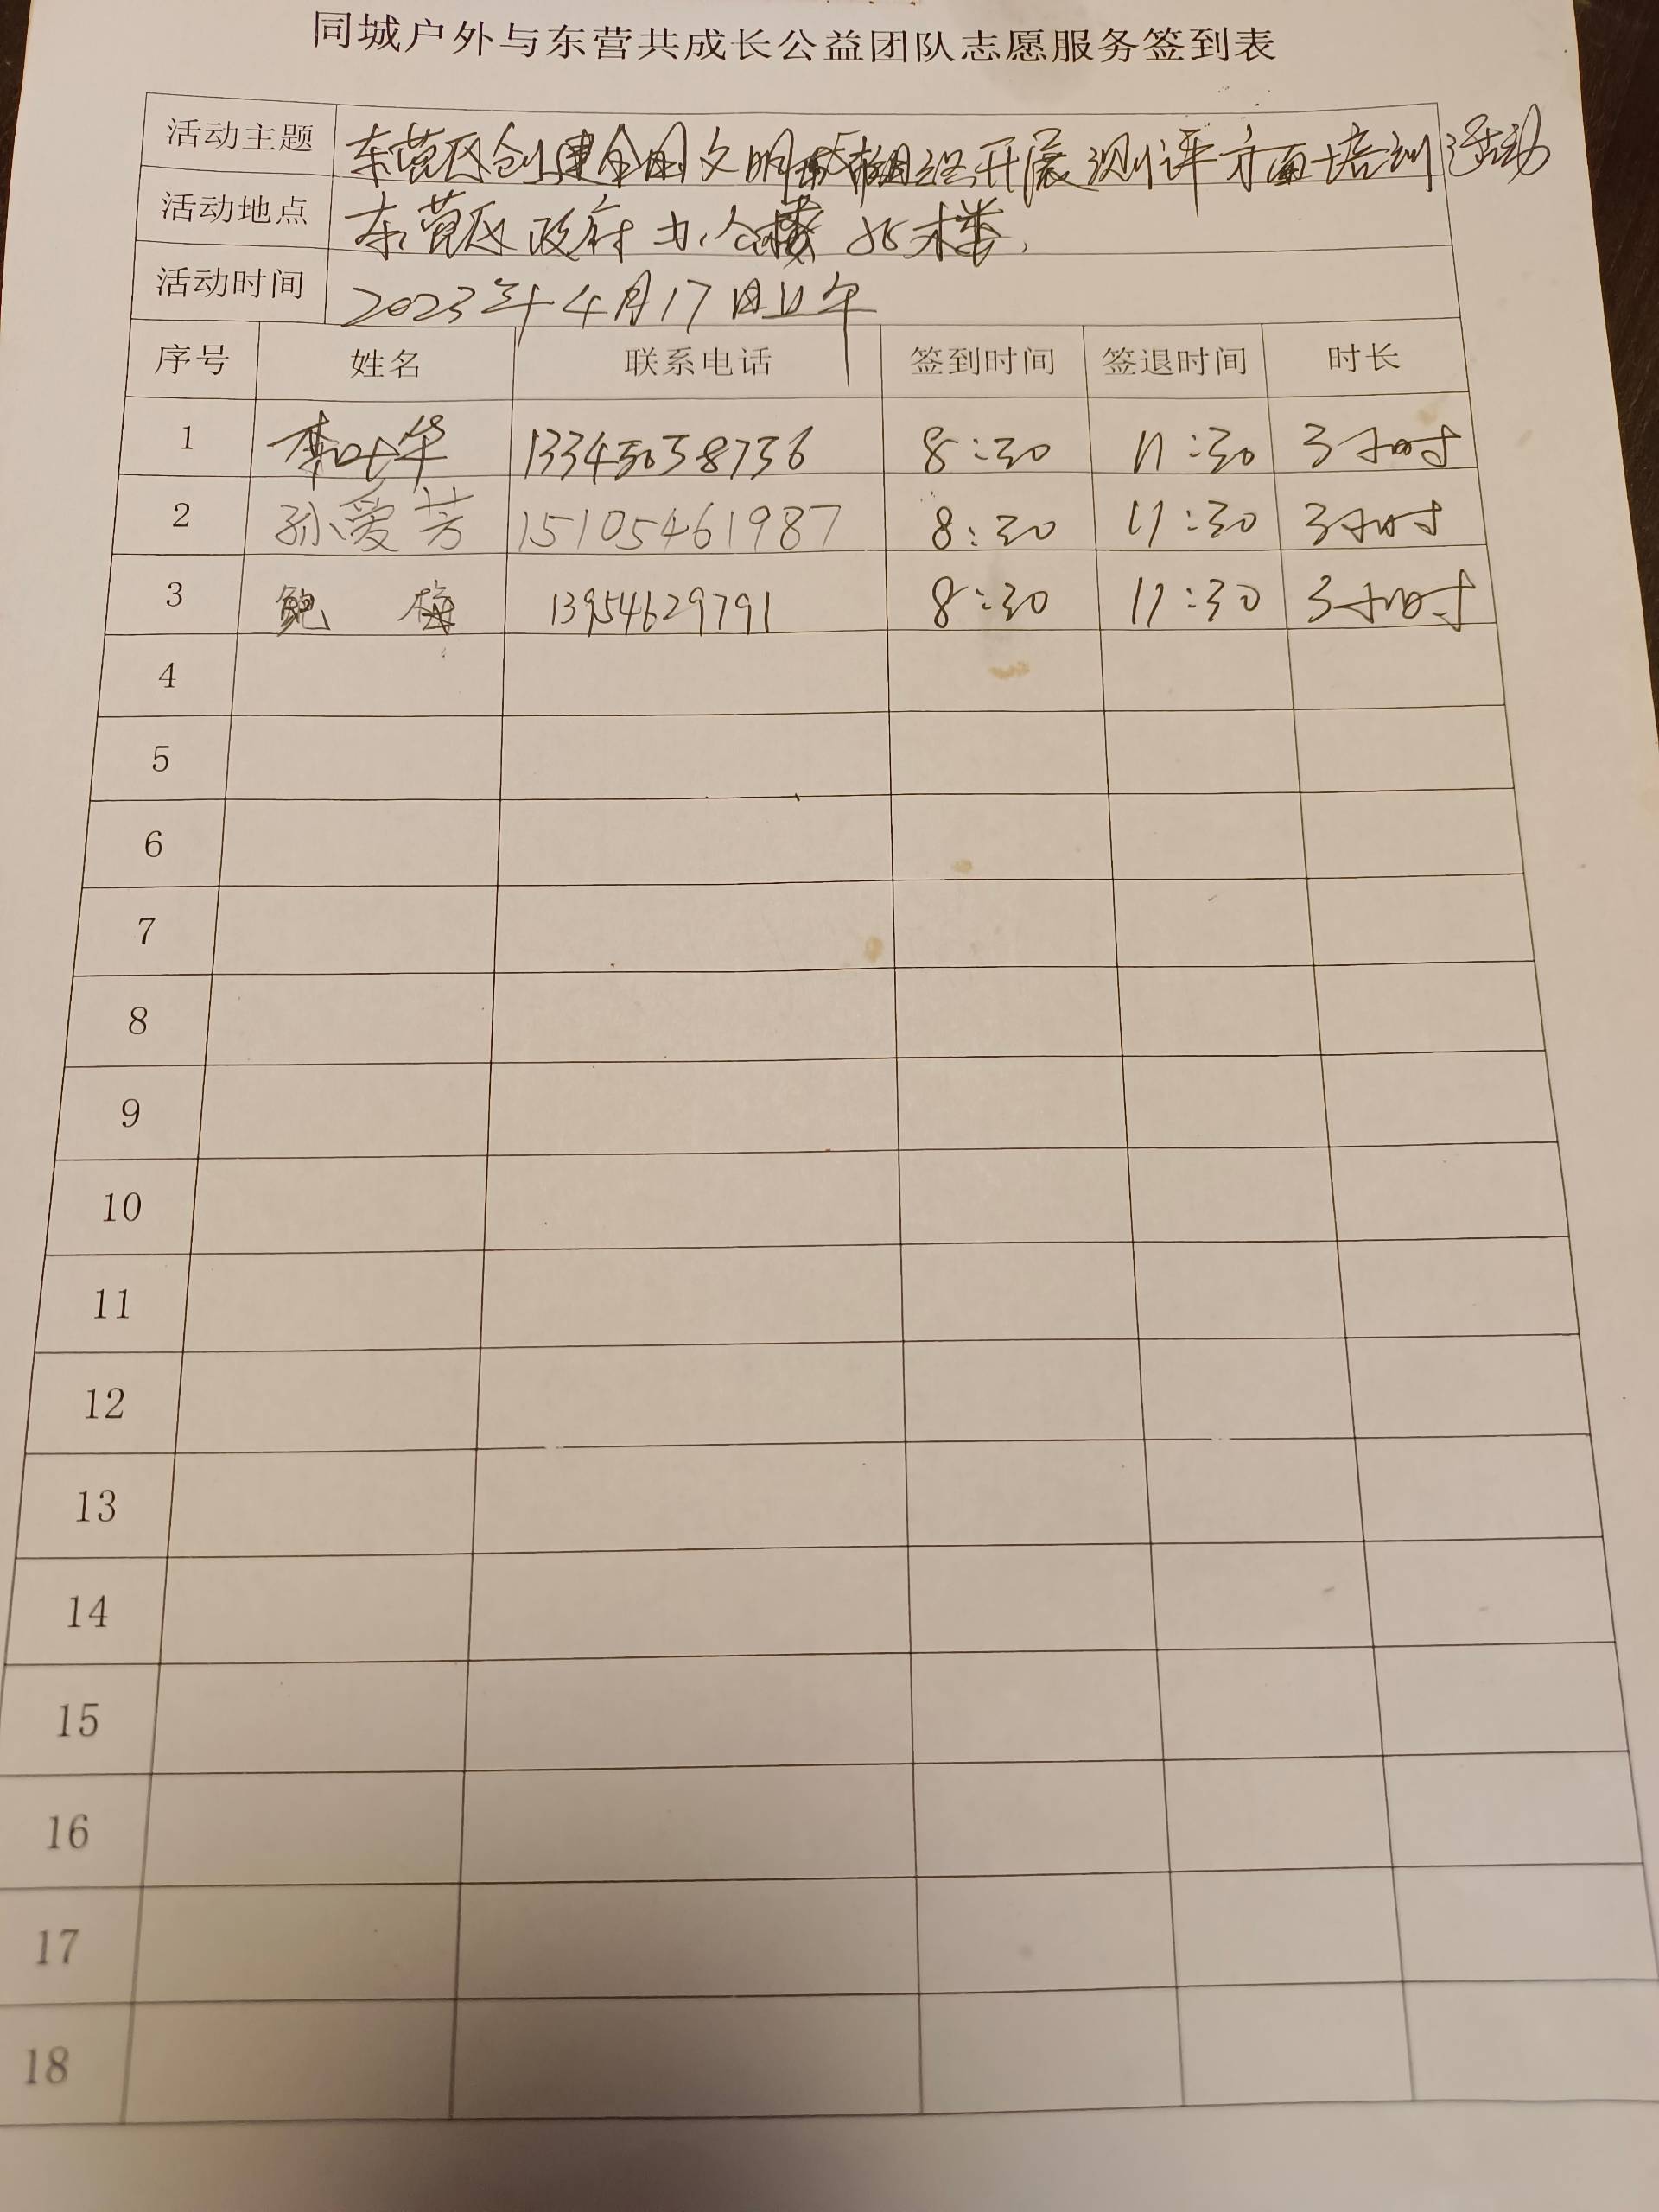 同城户外与东营共成长公益团队志愿服务签到表
活动主题 东营区创建全国文明城 开展测评方面培训活动
活动地点 东营区政府办公楼 楼
活动时间 2023年4月17日上午
序号 姓名 联系电话 签到时间 签退时间 时长
1 8:30 11:30 3小时
2 孙爱芳 15105461987 8:30 11:30 3小时
3 鲍梅 13954629791 8:30 11:30 3小时
4
5
6
7
8
9
10
11
12
13
14
15
16
17
18